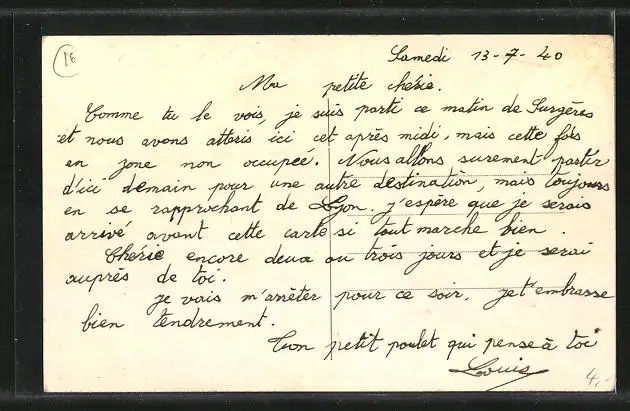 16
Samedi 13-7-40
Ma petite chérie.
Comme tu le vois, je suis parti ce matin de Surgères
et nous avons atteris ici cet après midi, mais cette fois
en zone non occupée. Nous allons surement partir
d'ici demain pour une autre destination, mais toujours
en se rapprochant de Lyon. j'espère que je serais
arrivé avant cette carte si tout marche bien.
Chérie encore deux ou trois jours et je serai
auprès de toi.
je vais m'arrêter pour ce soir. je t'embrasse
bien tendrement.
Ton petit poulet qui pense à toi
Louis
4,-